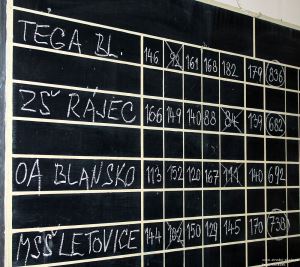 TEGA BL. 146 161 168 182 179 836
ZŠ RÁJEC 166 149 140 88 139 682
OA BLANSKO 113 152 120 167 111 140 692
MSŠ LETOVICE 144 150 129 145 170 738